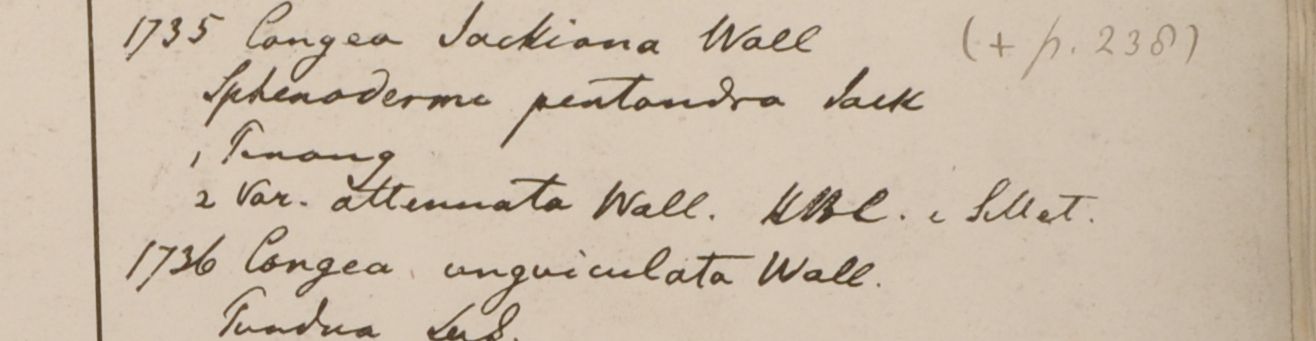 1735 Congea Jackiana Wall (+ p. 238)
Sphenoderma pentandra Jack
1 Penang
2 Var. attenuata Wall. HBC. e Sillet.
1736 Congea unguiculata Wall.